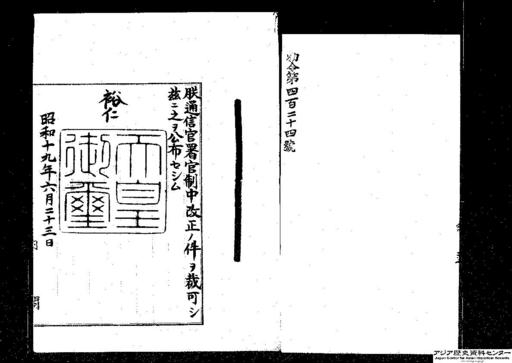 勅令第四百二十四號
朕通信官署官制中改正ノ件ヲ裁可シ
茲ニ之ヲ公布セシム
裕仁
天皇御璽
昭和十九年六月二十三日
アジア歴史資料センター
Japan Center for Asian Historical Records